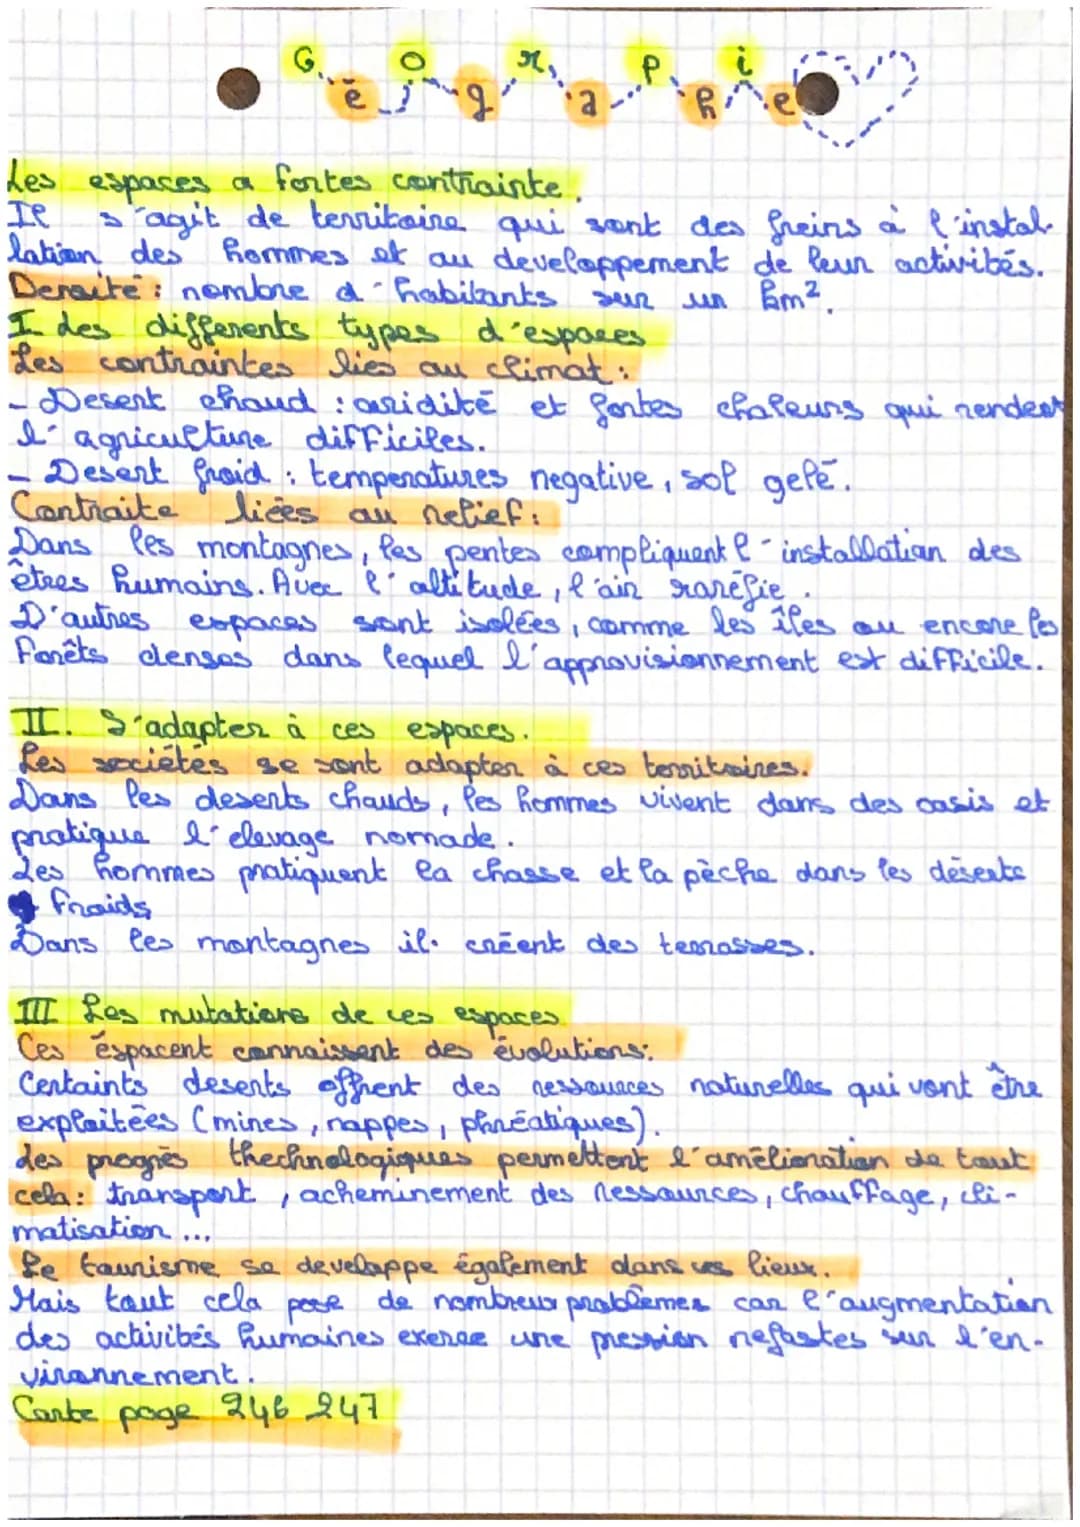 Géographie
Les espaces a fortes contrainte.
Il s'agit de territoire qui sont des freins à l'instal-
lation des hommes et au developpement de leur activités.
Densité : nombre d'habitants sur un km².
I des differents types d'espaces
Les contraintes lies au climat :
- Desert chaud : aridité et fortes chaleurs qui rendent
l'agriculture difficiles.
- Desert froid : temperatures negative, sol gelé.
Contraite liées au relief :
Dans les montagnes, les pentes compliquent l'installation des
êtres humains. Avec l'altitude, l'air raréfie.
D'autres espaces sont isolées, comme les îles ou encore les
forêts denses dans lequel l'approvisionnement est difficile.
II. S'adapter à ces espaces.
Les sociétés se sont adapter à ces territoires.
Dans les deserts chauds, les hommes vivent dans des oasis et
pratique l'elevage nomade.
Les hommes pratiquent la chasse et la pèche dans les déserts
froids
Dans les montagnes il créent des terrasses.
III Les mutations de ces espaces
Ces éspacent connaissent des évolutions :
Certaints deserts offrent des ressources naturelles qui vont être
exploitées (mines, nappes, phréatiques).
des progrès thechnologiques permettent l'amélioration de tout
cela : transport, acheminement des ressources, chauffage, cli-
matisation ...
Le tourisme se developpe également dans ces lieux.
Mais tout cela pose de nombreux problèmes car l'augmentation
des activités humaines exerce une pression nefastes sur l'en-
vironnement.
Carte page 246 247